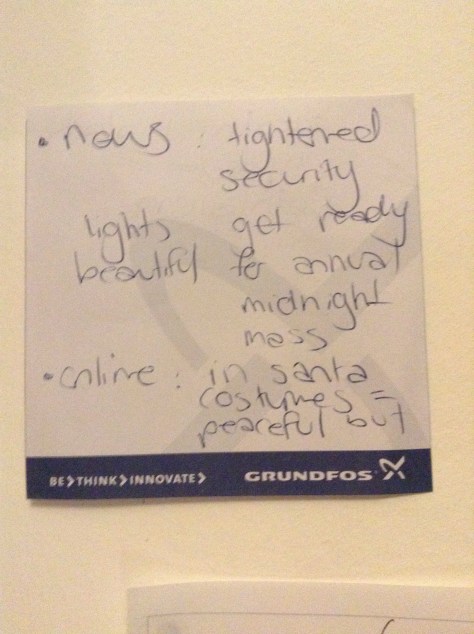 • news : tightened
security
lights get ready
beautiful for annual
midnight
mass
• online : in santa
costumes =
peaceful but
BE>THINK>INNOVATE>
GRUNDFOS